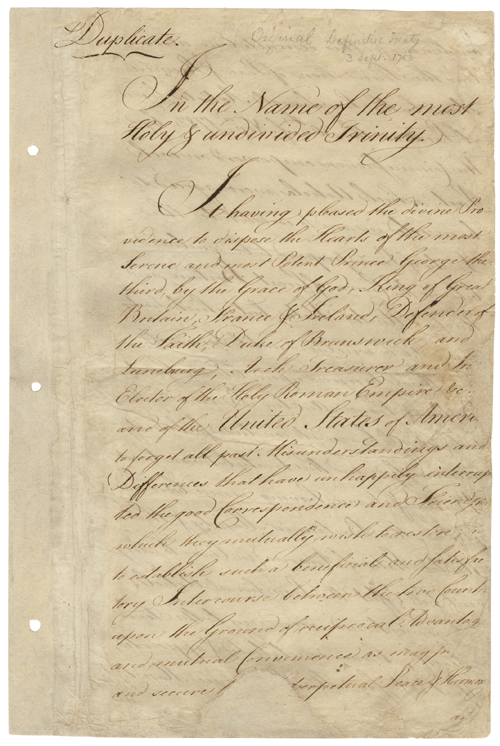 Duplicate.
Original Definitive Treaty
3 Sept. 1783
In the Name of the most
Holy & undivided Trinity.
It having pleased the divine Pro
vidence to dispose the Hearts of the most
Serene and most Potent Prince George the
third, by the Grace of God, King of Great
Britain, France & Ireland, Defender of
the Faith, Duke of Brunswick and
Lunebourg, Arch Treasurer and
Elector of the Holy Roman Empire &c.
and of the United States of Ameri
to forget all past Misunderstandings and
Differences that have unhappily interrup
ted the good Correspondence and Friend
which they mutually wish to restore;
to establish such a beneficial and satisfac
tory Intercourse between the two Count
upon the Ground of reciprocal Advantag
and mutual Convenience as may
and secure perpetual Peace & Harmony